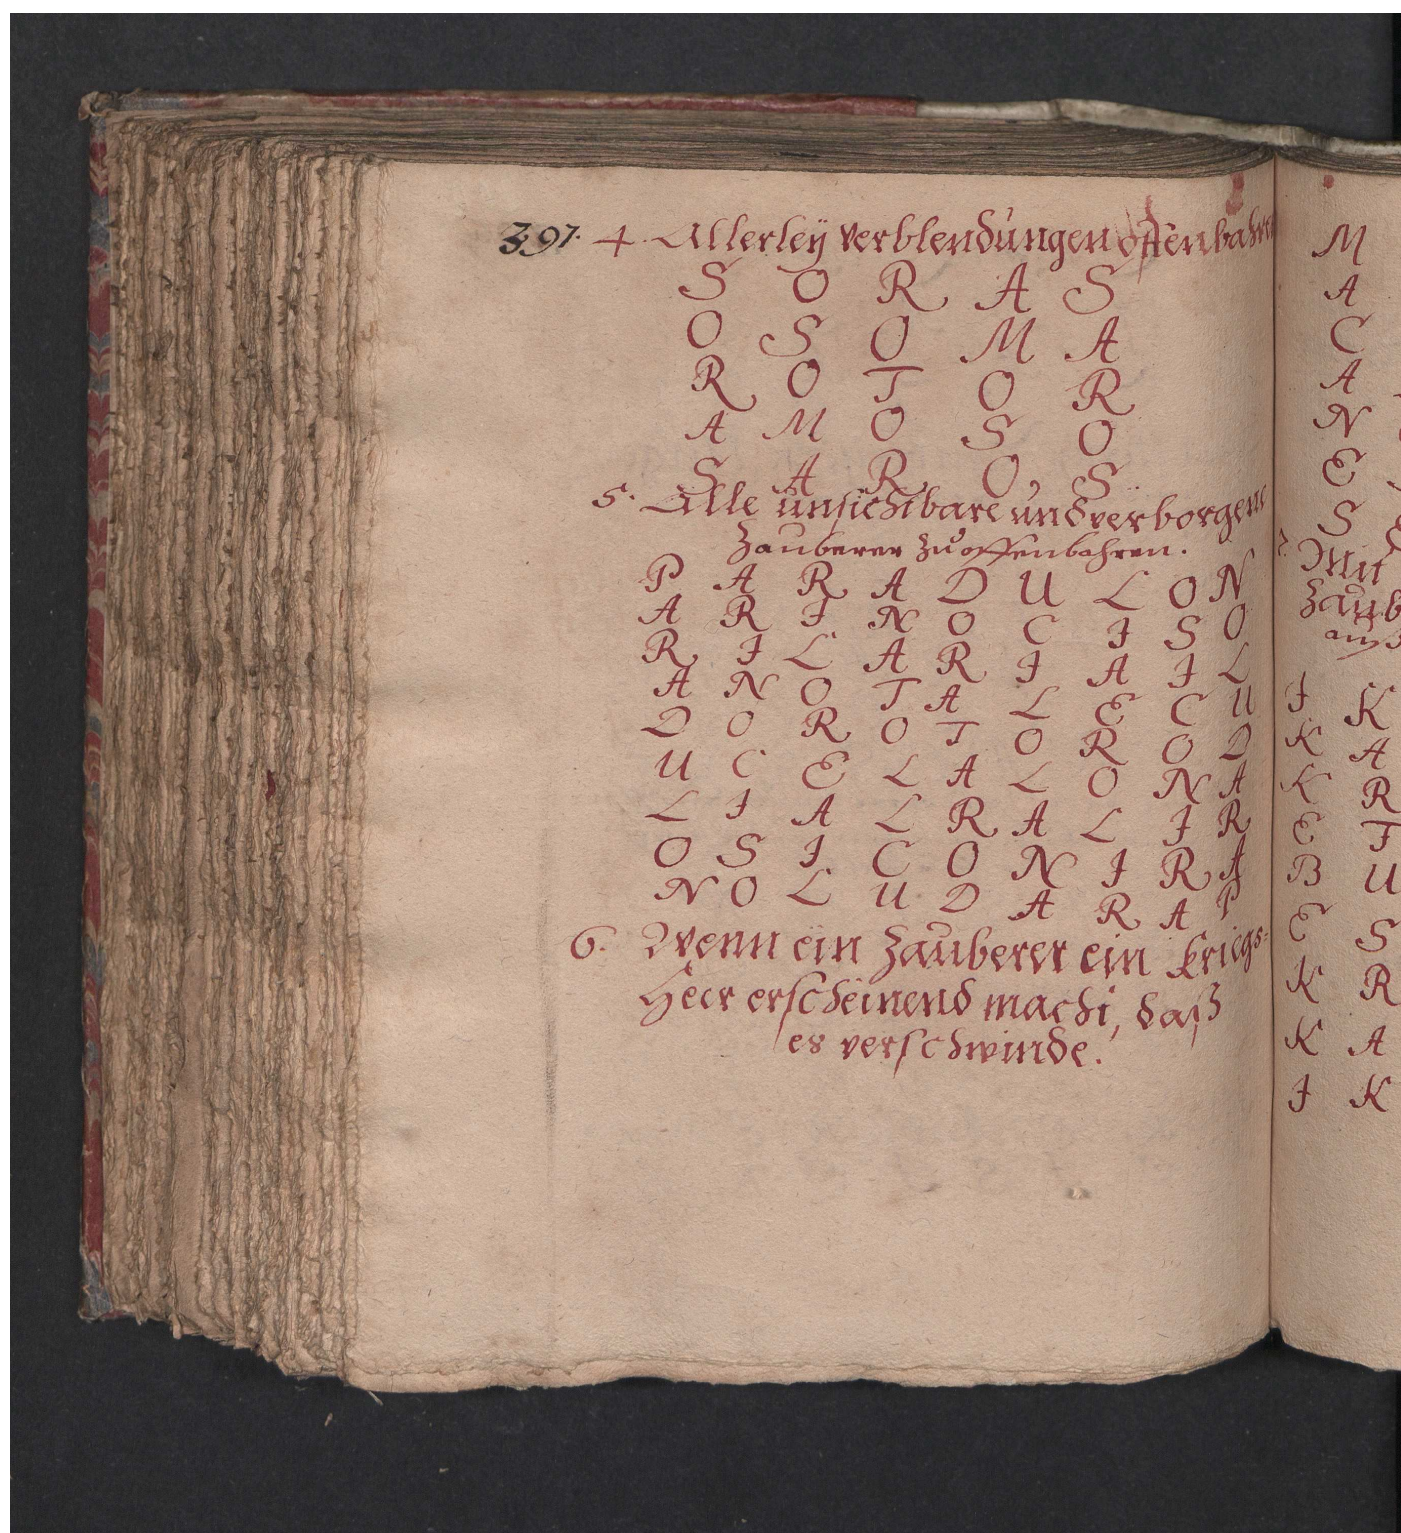 397. 4. Allerleÿ verblendungen offenbahren
S O R A S
O S O M A
R O T O R
A M O S O
S A R O S
5. Alle unsichtbare und verborgene
Zauberer zu offenbahren.
P A R A D U L O N
A R I N O C I S O
R I L A R I A I L
A N O T A L E C U
D O R O T O R O D
U C E L A L O N A
L I A L R A L I R
O S I C O N I R A
N O L U D A R A P
6. Wenn ein Zauberer ein kriegs-
Heer erscheinend macht, daß
es verschwinde.
M
A
C
A
N
E
S
I K
K A
K R
E T
B U
E S
K R
K A
I K